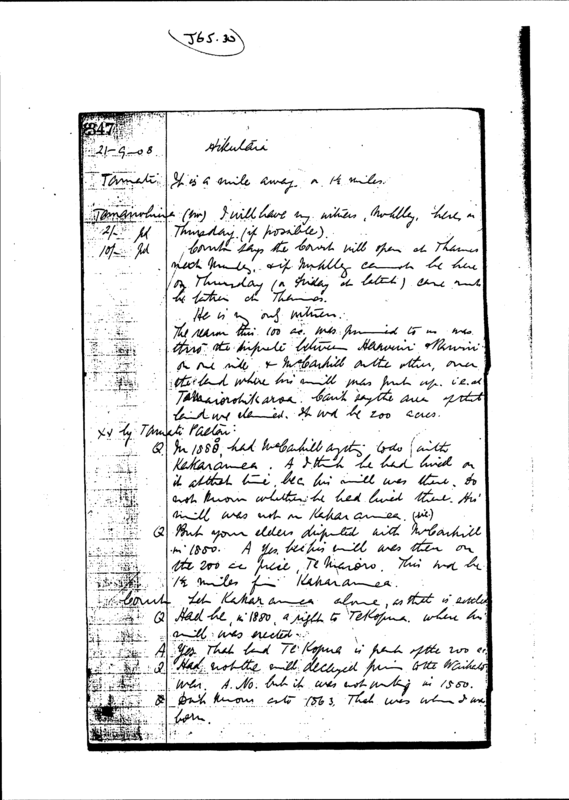 J65.30
347
21-9-08 Hikutaia
Tamati It is a mile away or 1½ miles.
(on) I will have my witness, McNlly, here, on
2/- pd Thursday (if possible).
10/- pd Court says the Court will open at Thames
next Monday, & if McNlly cannot be here
on Thursday (or Friday at latest) case must
be taken at Thames.
He is my only witness.
The reason this 100 ac. was promised to us was
thro' the dispute between &
on one side, & McCaskill on the other, over
the land where his mill was put up. i.e. at
Can't say the area of that
land we claimed. It wd be 200 acres.
xx by Tamati Paetai:
Q In 1880, had McCaskill anything to do with
Kakaramea. A I think he had lived on
it at that time, bec. his mill was there. Do
not know whether he had lived there. His
mill was not on Kakaramea. (sic)
Q But your elders disputed with McCaskill
in 1880. A Yes, bec his mill was then on
the 200 ac piece, Te Maioro. This wd be
1½ miles from Kakaramea.
Court Let Kakaramea alone, as that is
Q Had he, in 1880, a right to TeKopua where his
mill was erected.
A Yes. That land Te Kopua is part of the 200 ac.
Q Had not the mill decayed prior to the Waikato
war. A. No. but it was not working in 1880.
Don't know as to 1863. That was when I was
born.